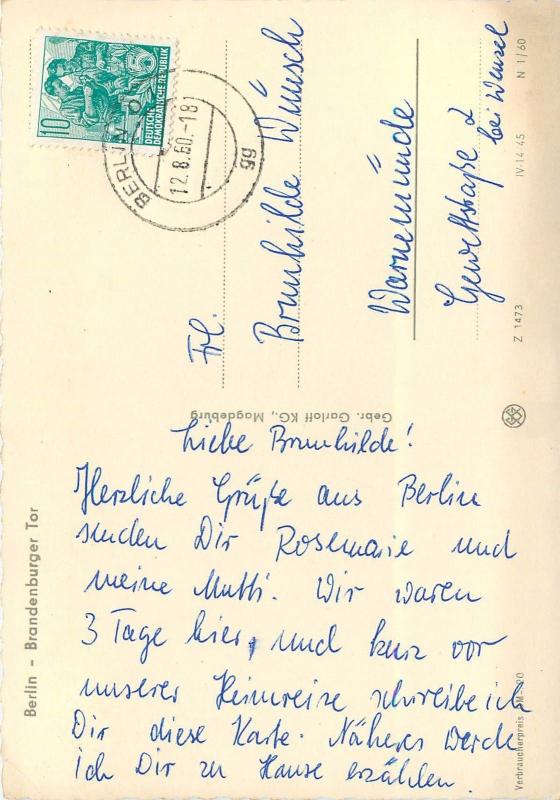 10
DEUTSCHE
DEMOKRATISCHE REPUBLIK
5
BERLIN
12.8.60.-18
gg
Frl.
Brunhilde Wünsch
Warnemünde
bei Wenzel
Gebr. Garloff KG., Magdeburg
Z 1473
IV-14-45
N 1/60
Berlin – Brandenburger Tor
Liebe Brunhilde!
Herzliche Grüße aus Berlin
senden Dir Rosemarie und
meine Mutti. Wir waren
3 Tage hier, und kurz vor
unserer Heimreise schreibe ich
Dir diese Karte. Näheres werde
ich Dir zu Hause erzählen.
Verbraucherpreis